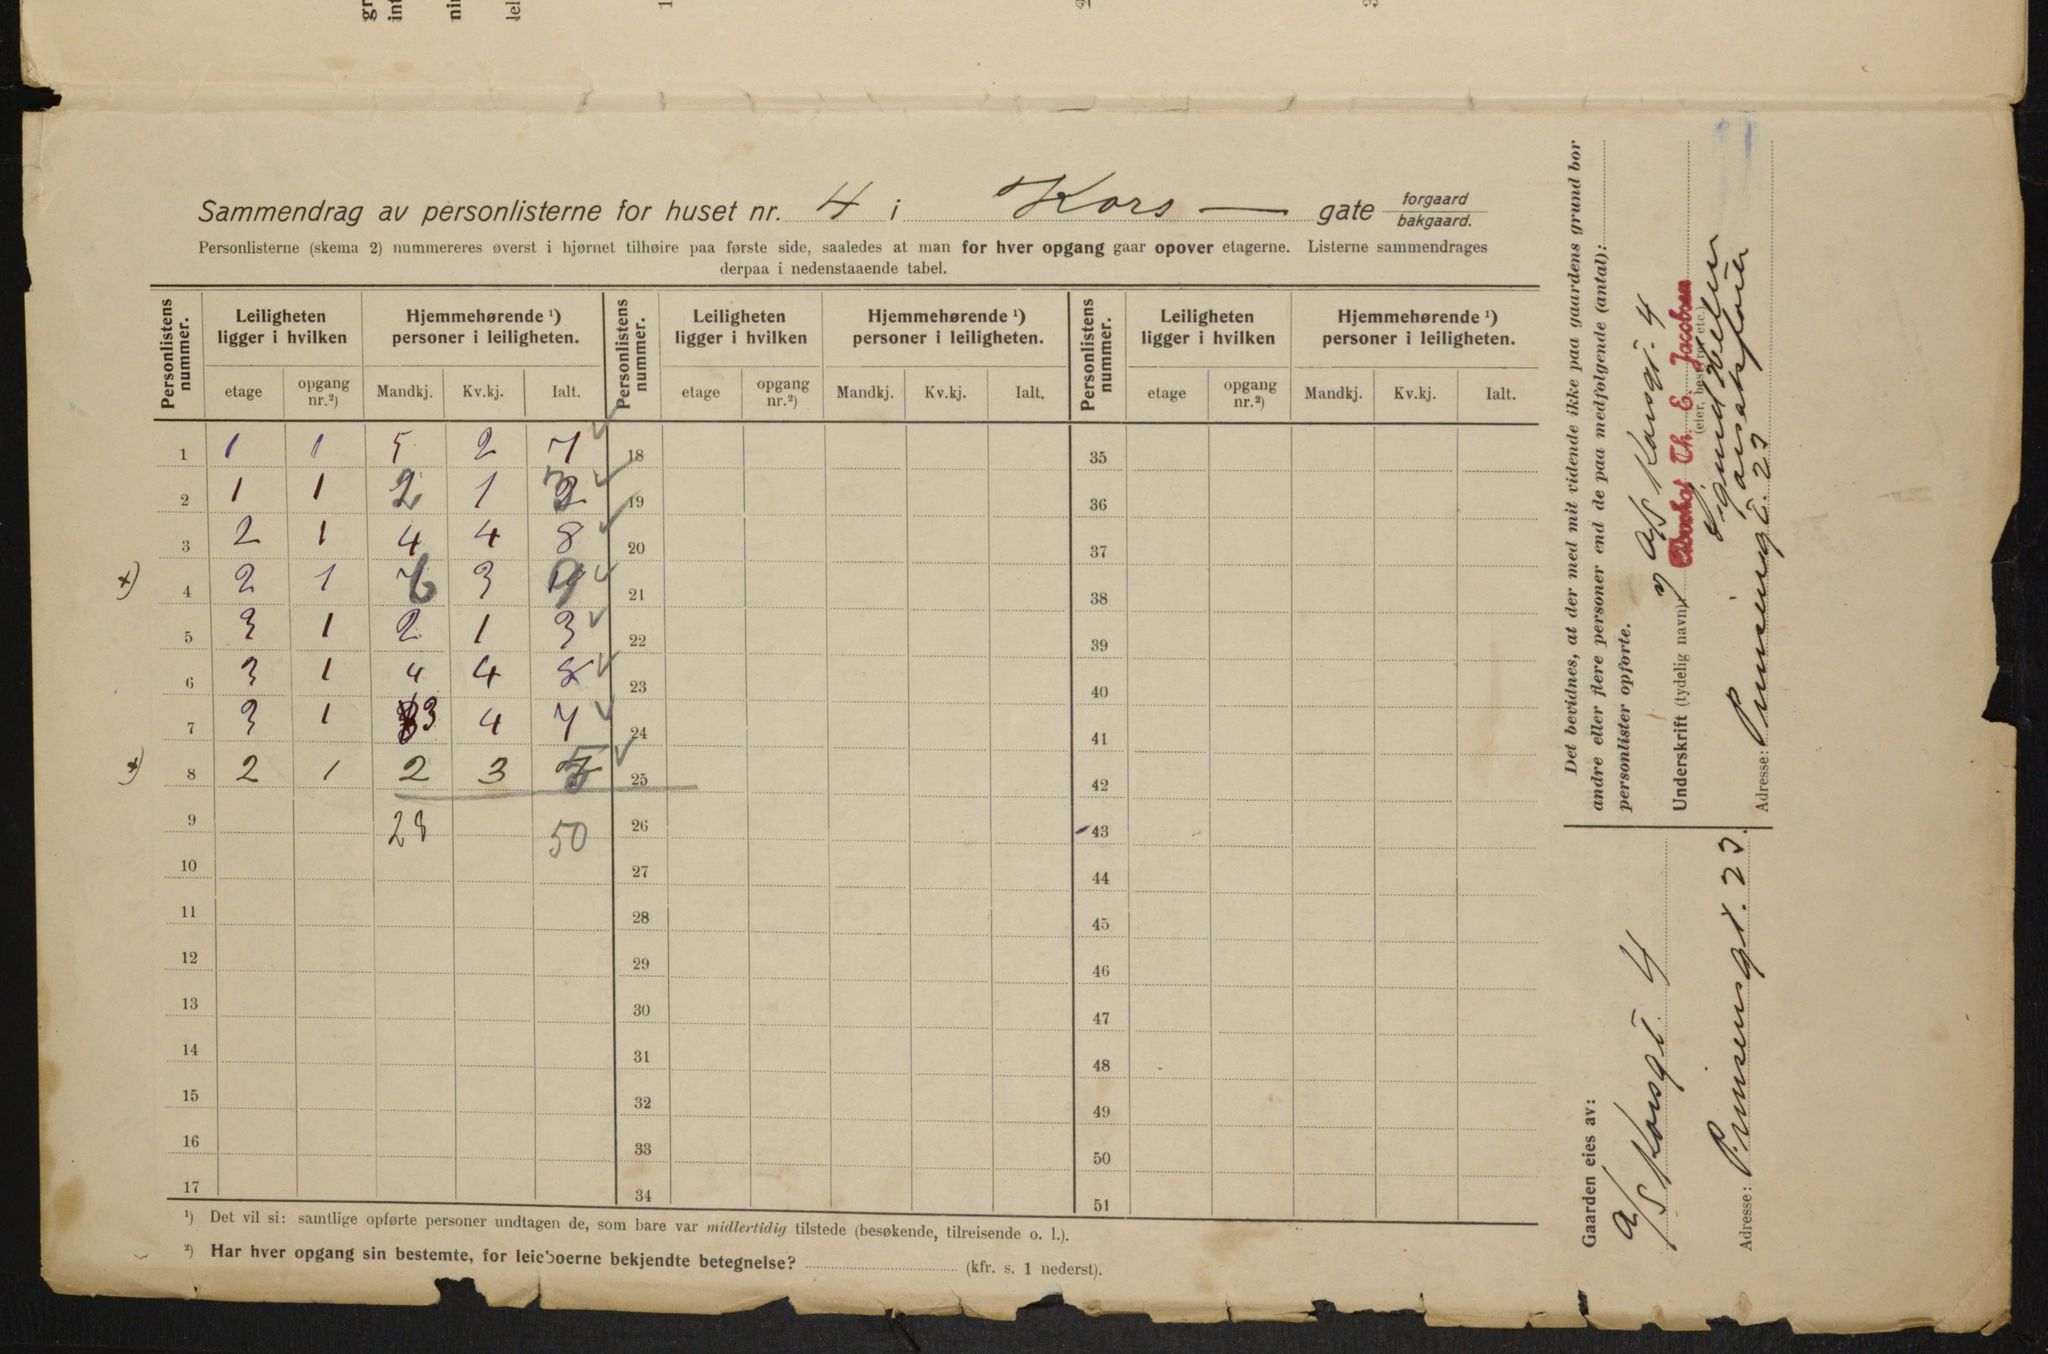 Sammendrag av personlisterne for huset nr. 4 i Kors — gate forgaard bakgaard.
Personlisterne (skema 2) nummereres øverst i hjørnet tilhøire paa første side, saaledes at man for hver opgang gaar opover etagerne. Listerne sammendrages
derpaa i nedenstaaende tabel.
Personlistens nummer. Leiligheten ligger i hvilken Hjemmehørende ¹) personer i leiligheten. Personlistens nummer. Leiligheten ligger i hvilken Hjemmehørende ¹) personer i leiligheten. Personlistens nummer. Leiligheten ligger i hvilken Hjemmehørende ¹) personer i leiligheten.
etage opgang nr.²) Mandkj. Kv.kj. Ialt. etage opgang nr.²) Mandkj. Kv.kj. Ialt. etage opgang nr.²) Mandkj. Kv.kj. Ialt.
1 1 1 5 2 7 18 35
2 1 1 2 1 3 19 36
3 2 1 4 4 8 20 37
4 2 1 6 3 9 21 38
5 3 1 2 1 3 22 39
6 3 1 4 4 8 23 40
7 3 1 3 4 7 24 41
8 2 1 2 3 5 25 42
9 28 50 26 43
10 27 44
11 28 45
12 29 46
13 30 47
14 31 48
15 32 49
16 33 50
17 34 51
¹) Det vil si: samtlige opførte personer undtagen de, som bare var midlertidig tilstede (besøkende, tilreisende o. l.).
²) Har hver opgang sin bestemte, for leieboerne bekjendte betegnelse? (kfr. s. 1 nederst).
Det bevidnes, at der med mit vidende ikke paa gaardens grund bor
andre eller flere personer end de paa medfølgende (antal):
personlister opførte.
A/S Korsgt. 4
Underskrift (tydelig navn): Advokat Th. E. Jacobsen
(eier, bestyrer etc.)
Adresse: Prinsensgt. 23
Gaarden eies av:
A/S Korsgt 4
Adresse: Prinsensgt. 23.